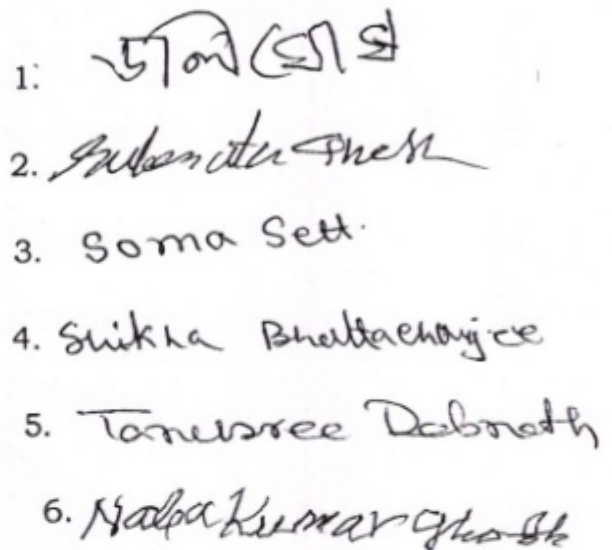 1. ডলি ঘোষ
2. Ghosh
3. Soma Sett.
4. Shikha Bhattacharjee
5. Tanusree Debnath
6. Naba Kumar Ghosh